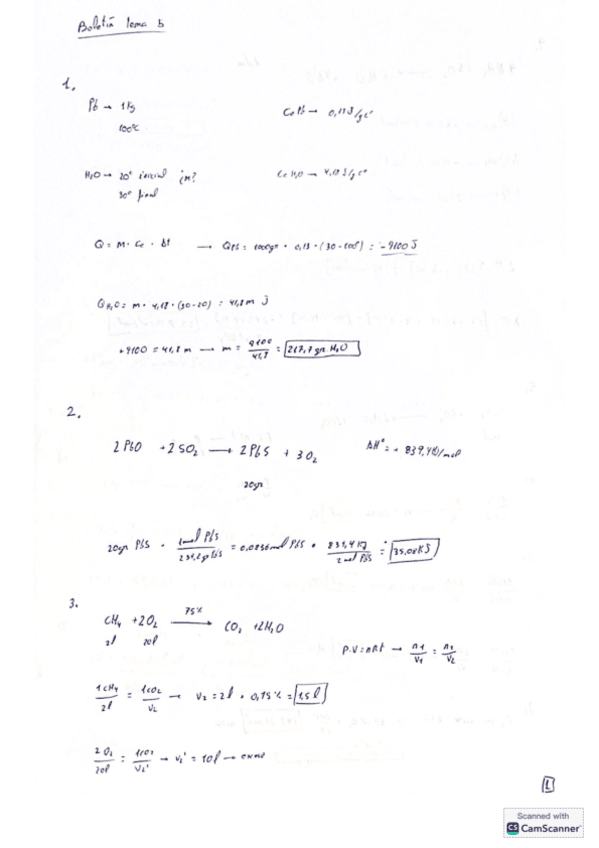 Boletín tema 5
1.
Pb → 1Kg
100ºC
Ce Pb → 0,13 J/gcº
H₂O → 20º inicial ¿m?
30º final
Ce H₂O → 4,18 J/gcº
Q = m · Ce · Δt → Q Pb = 1000gr · 0,13 · (30-100) = -9100 J
Q H₂O = m · 4,18 · (30-20) = 41,8 m J
+9100 = 41,8 m → m = 9100/41,8 = 217,7 gr H₂O
2.
2 PbO + 2 SO₂ → 2 PbS + 3 O₂ ΔHº = + 839,4 KJ/mol
20gr
20gr PbS · 1mol PbS/239,2gr PbS = 0,0836 mol PbS · 839,4 KJ/2 mol PbS = 35,08 KJ
3.
CH₄ + 2O₂ 75% → CO₂ + 2H₂O
2l 20l
P·V = nRT → n1/V1 = n2/V2
1CH₄/2l = 1CO₂/V₂ → V₂ = 2l · 0,75% = 1,5 l
2 O₂/20l = 1CO₂/V₂' → V₂' = 10l →
1
Scanned with
CS CamScanner